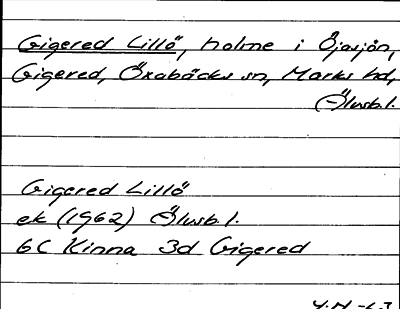 Gigered Lillö, holme i Öjasjön,
Gigered, Öxabäcks sn, Marks hd,
Älvsb.l.
Gigered Lillö
ek (1962) Älvsb.l.
6C Kinna 3d Gigered